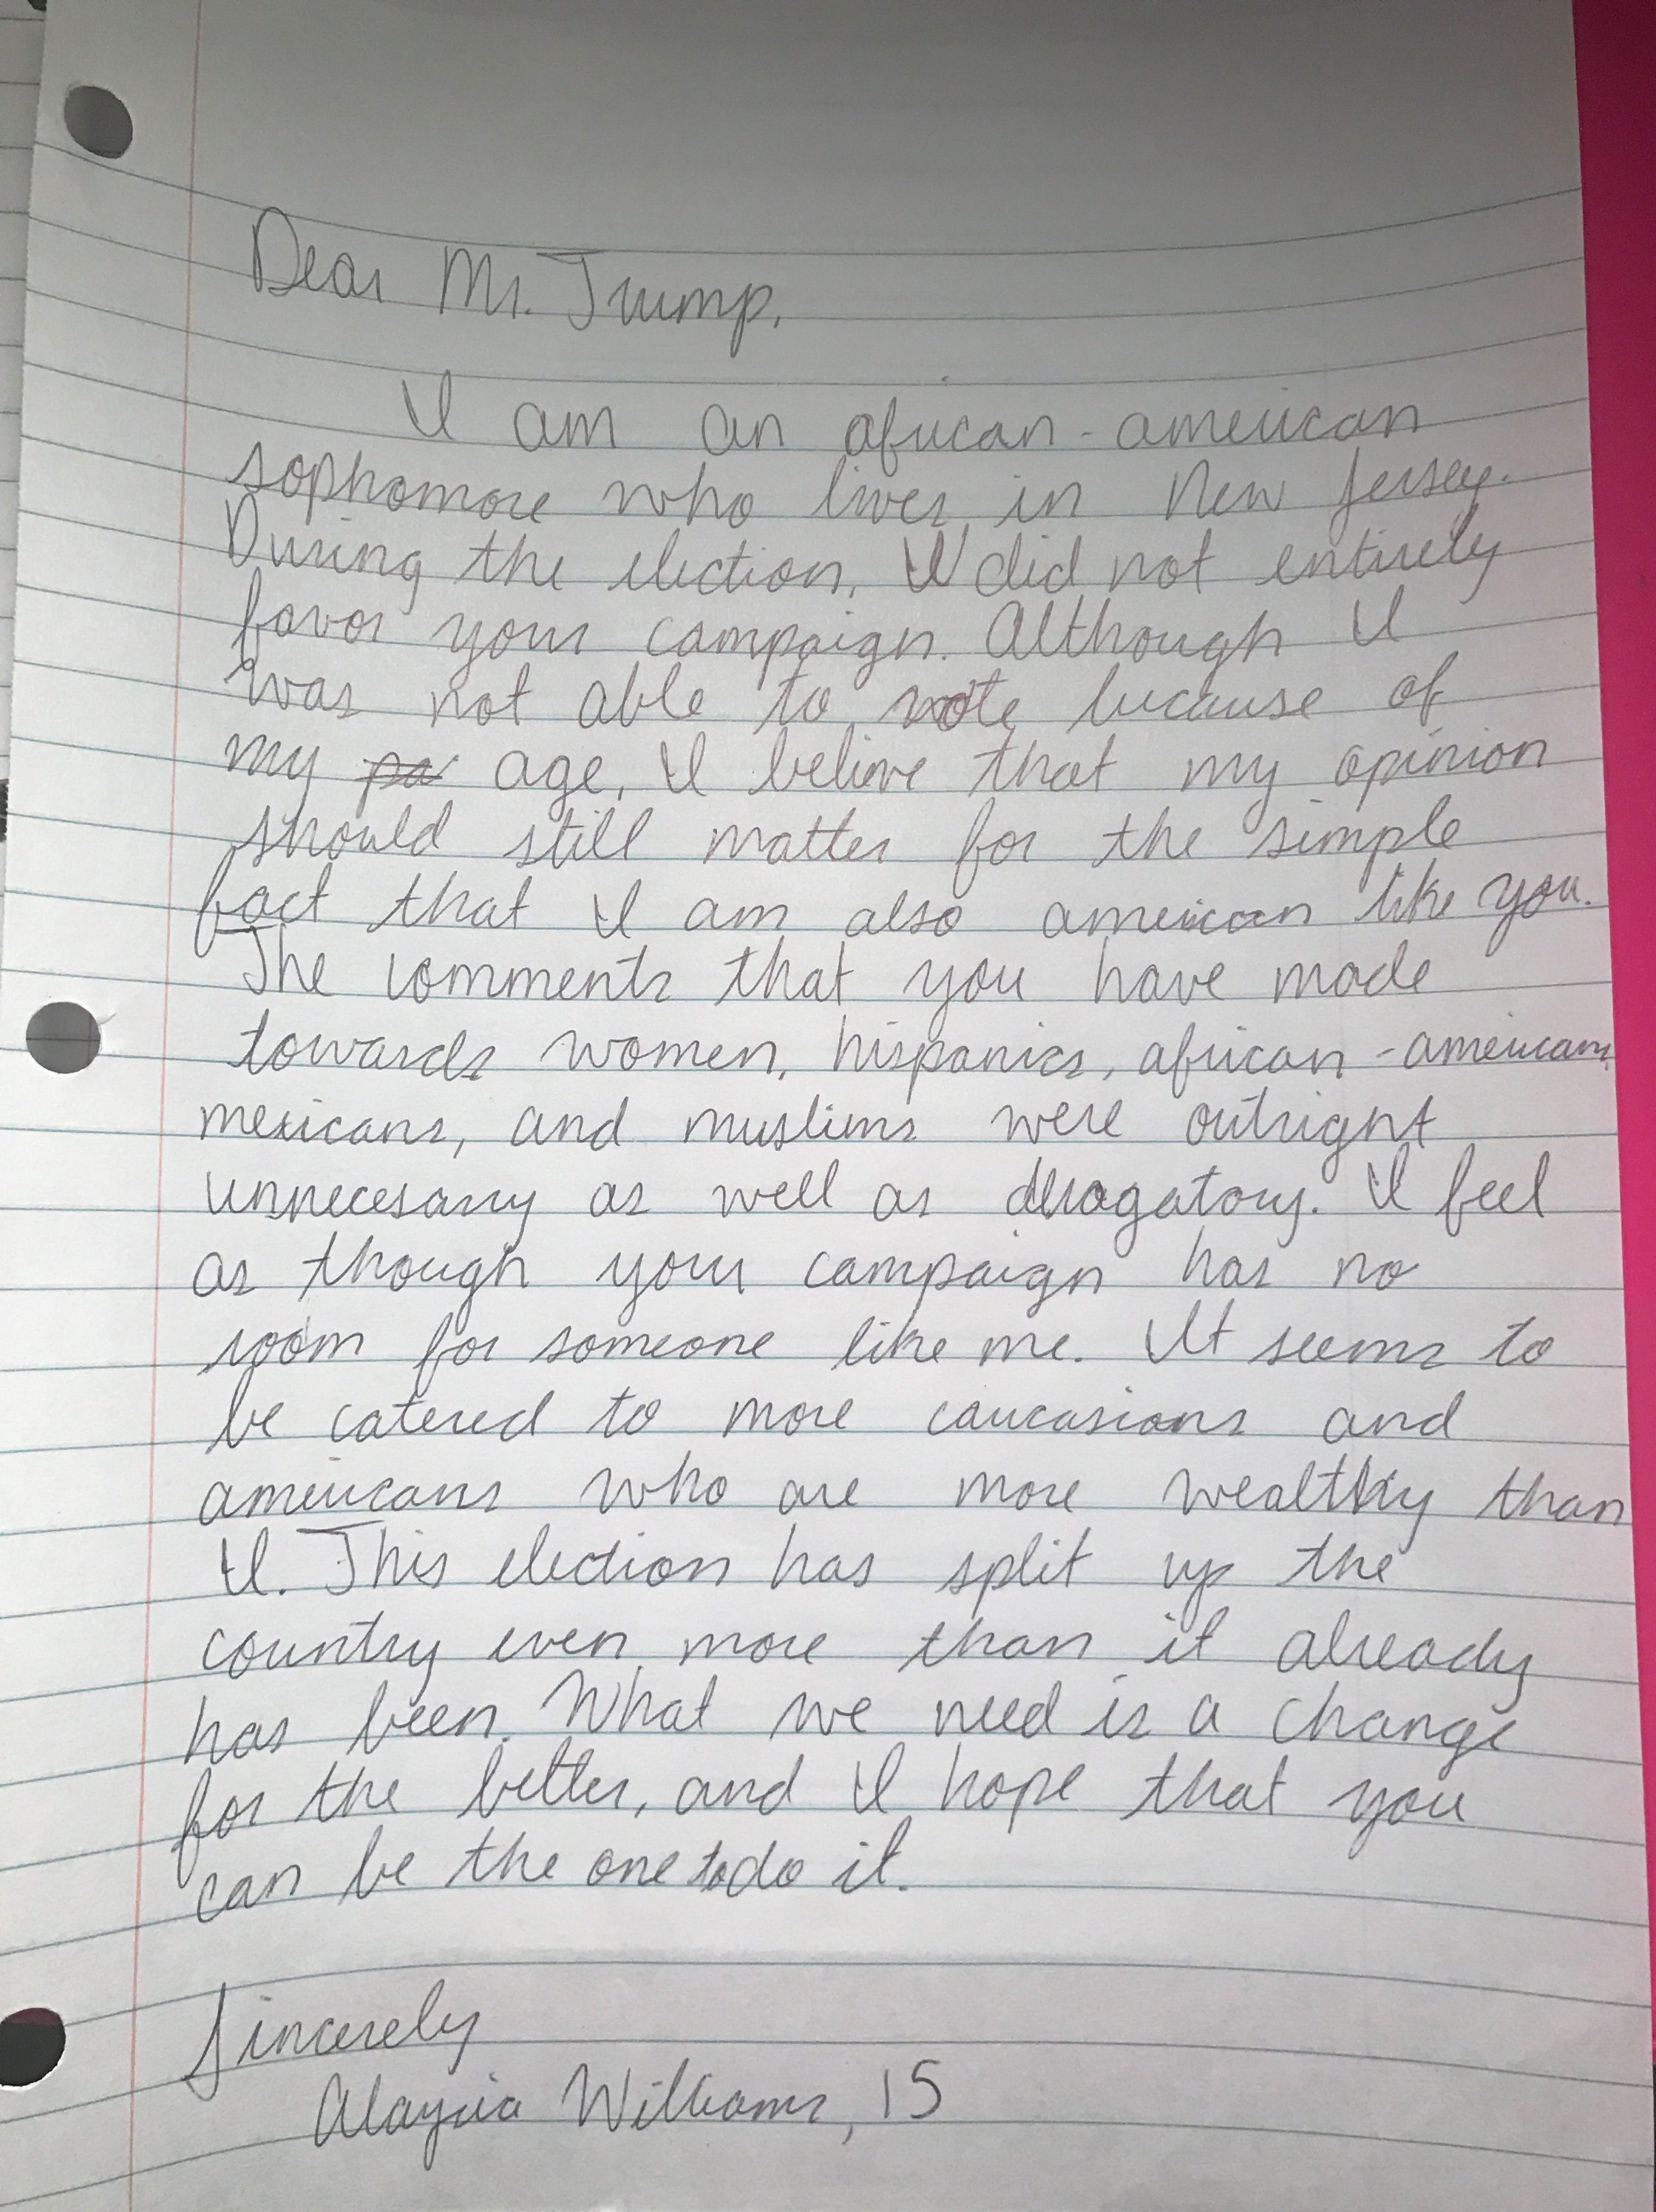 Dear Mr. Trump,
I am an african-american
sophomore who lives in New Jersey.
During the election, I did not entirely
favor your campaign. Although I
was not able to vote because of
my pa age, I believe that my opinion
should still matter for the simple
fact that I am also american like you.
The comments that you have made
towards women, hispanics, african-americans,
mexicans, and muslims were outright
unnecesarry as well as derogatory. I feel
as though your campaign has no
room for someone like me. It seems to
be catered to more caucasians and
americans who are more wealthy than
I. This election has split up the
country even more than it already
has been. What we need is a change
for the better, and I hope that you
can be the one to do it.
Sincerely
Williams, 15